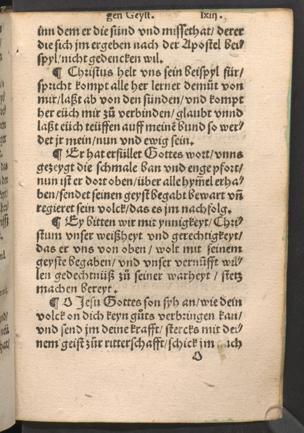 gen Geyst. lxiij.
inn dem er die sünd vnd missethat/ derer
die sich jm ergeben nach der Apostel bei⸗
spyl/nicht gedencken wil.
¶ Christus helt vns sein beispyl für/
spricht kompt alle her lerner demüt von
mir/laßt ab von den sünden/vnd kompt
her eüch mir zů verbinden/glaubt vnnd
laßt eüch teüffen auff meinē bund so wer⸗
det jr mein/nun vnd ewig sein.
¶ Er hat erfüllet Gottes wort/vnns
gezeygt die schmale ban vnd enge pfort/
nun ist er dort oben/über alle hym̃el erha⸗
ben/sendet seinen geyst begabt bewart vñ
regieret sein volck/das es jm nachfolg.
¶ Ey bitten wir mit ynnigkeyt/Chri⸗
stum vnser weißheyt vnd gerechtigkeyt/
das er vns von oben/wolt mit seinem
geyste begaben/vnd vnser vernüfft wil⸗
len gedechtnüß zů seiner warheyt/stetz
machen bereyt.
¶ O Jesu Gottes son syh an/wie dein
volck on dich keyn gůts verbringen kan/
vnd send jm deine krafft/stercks mit dei⸗
nem geist zůr ritterschafft/schick jm auch